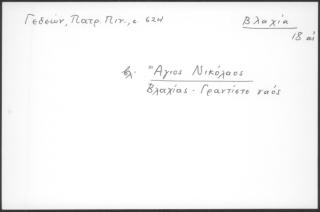 Γεδεών, Πατρ. Πιν., σ 624
Βλαχία
18 αἰ
βλ. Ἅγιος Νικόλαος
Βλαχίας - Γραντίστε ναός